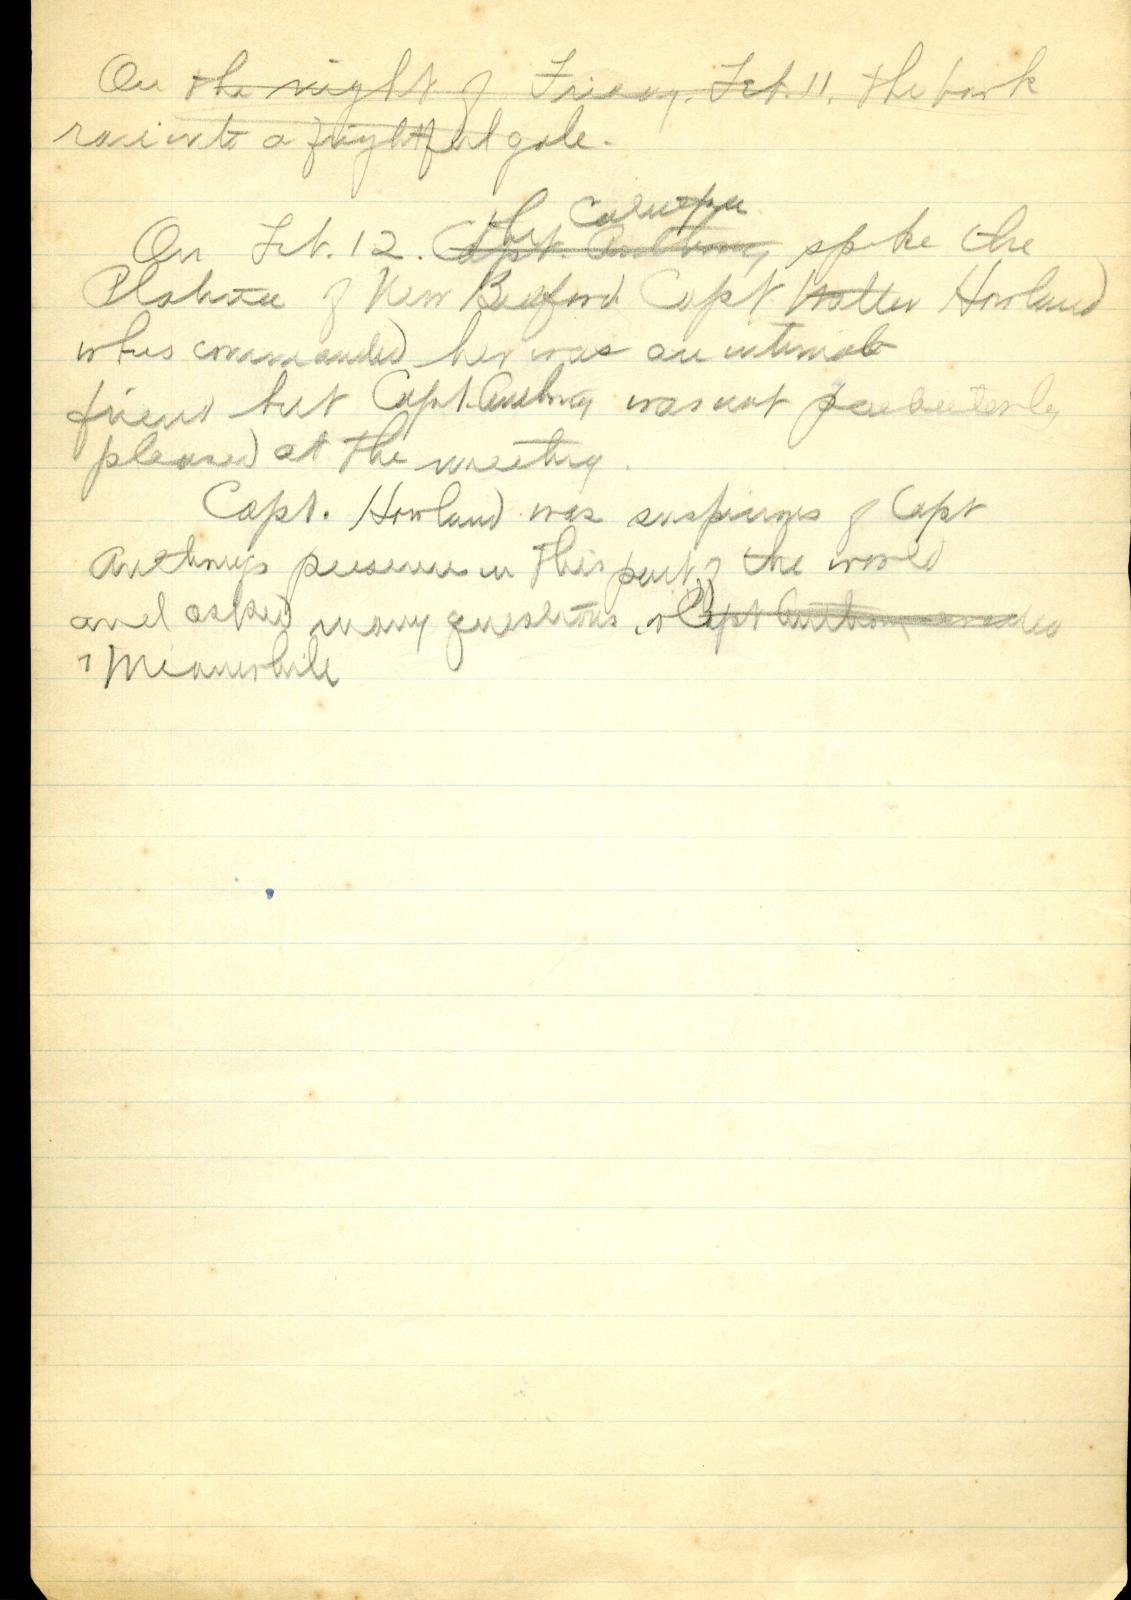 On the night of Friday. Feb. 11. the bark
ran into a frightful gale.
the Catalpa
On Feb. 12. Capt. Anthony spoke the
Platina of New Bedford Capt. Walter Howland
who commanded her was an intimate
friend but Capt. Anthony was not particularly
pleased at the meeting.
Capt. Howland was suspicious of Capt
Anthony's presence in this part of the world
and asked many questions. Capt Anthony evaded
Meanwhile